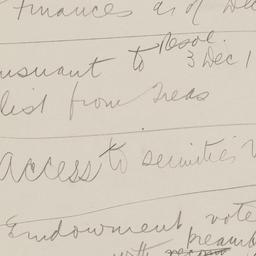 Finances as of Dec
Resol.
to 3 Dec 1
list from Treas
Access to securities
Endowment vote
with preamb